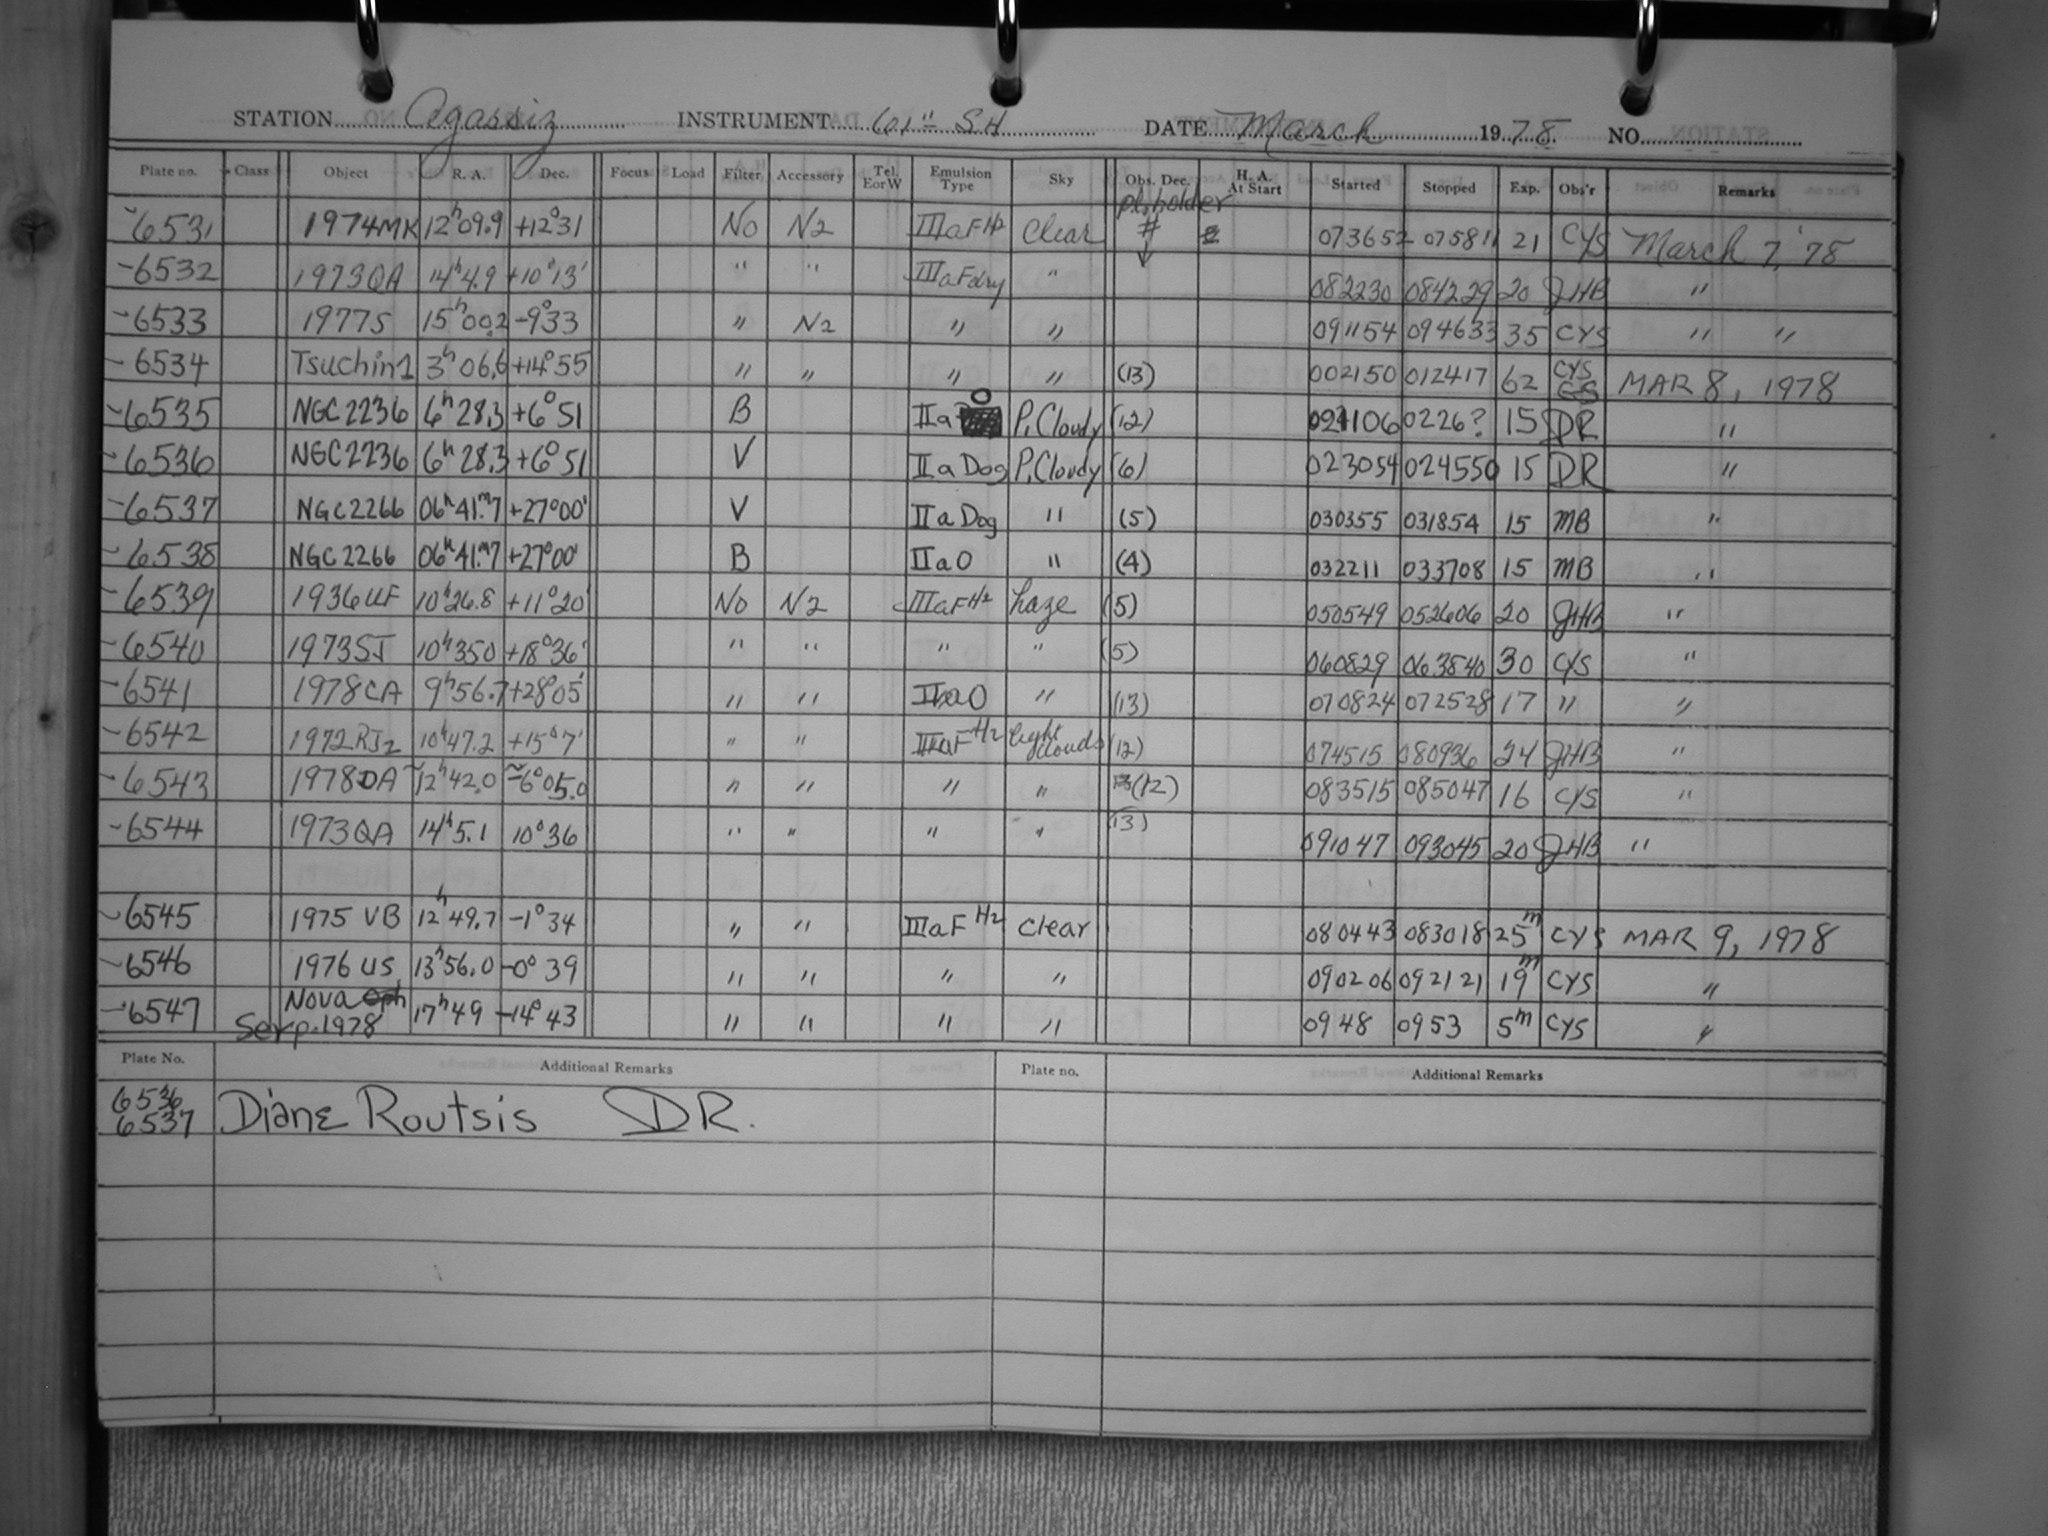 STATION Agassiz INSTRUMENT 61" SH DATE March 1978 NO.
Plate no. Class Object R. A. Dec. Focus Load Filter Accessory Tel. E or W Emulsion Type Sky Obs. Dec. H. A. At Start Started Stopped Exp. Obs'r Remarks
pl. holder
6531 1974MK 12h09.9 +12°31 No N2 IIIaF H2 clear # 073652 075811 21 CYS March 7, '78
6532 1973QA 14h4.9 +10°13' " " IIIaF dry " 082230 084229 20 JHB "
6533 1977S 15h00.2 -9°33 " N2 " " 091154 094633 35 CYS " "
6534 Tsuchin1 3h06.6 +14°55 " " " " (13) 002150 012417 62 CYS MAR 8, 1978
6535 NGC2236 6h28.3 +6°51 B IIaO P. Cloudy (12) 021106 0226? 15 DR "
6536 NGC2236 6h28.3 +6°51 V IIaDog P. Cloudy (6) 023054 024550 15 DR "
6537 NGC2266 06h41m.7 +27°00' V IIaDog " (5) 030355 031854 15 MB "
6538 NGC2266 06h41m.7 +27°00' B IIaO " (4) 032211 033708 15 MB "
6539 1936UF 10h26.8 +11°20' No N2 IIIaF H2 haze (5) 050549 052606 20 JHB "
6540 1973SJ 10h350 +18°36' " " " " (5) 060829 063840 30 CYS "
6541 1978CA 9h56.7 +28°05' " " IIaO " (13) 070824 072528 17 " "
6542 1972RJ2 10h47.2 +15°7' " " IIIaF H2 light clouds (12) 074515 080936 24 JHB "
6543 1978DA ~12h42.0 ~-6°05.0 " " " " (12) 083515 085047 16 CYS "
6544 1973QA 14h5.1 10°36 " " " " (13) 091047 093045 20 JHB "
6545 1975 VB 12h49.7 -1°34 " " IIIaF H2 clear 080443 083018 25m CYS MAR 9, 1978
6546 1976 US 13h56.0 -0°39 " " " " 090206 092121 19m CYS "
6547 Nova Oph Serp. 1978 17h49 -14°43 " " " " 0948 0953 5m CYS "
Plate No. Additional Remarks Plate no. Additional Remarks
6536
6537 Diane Routsis DR.